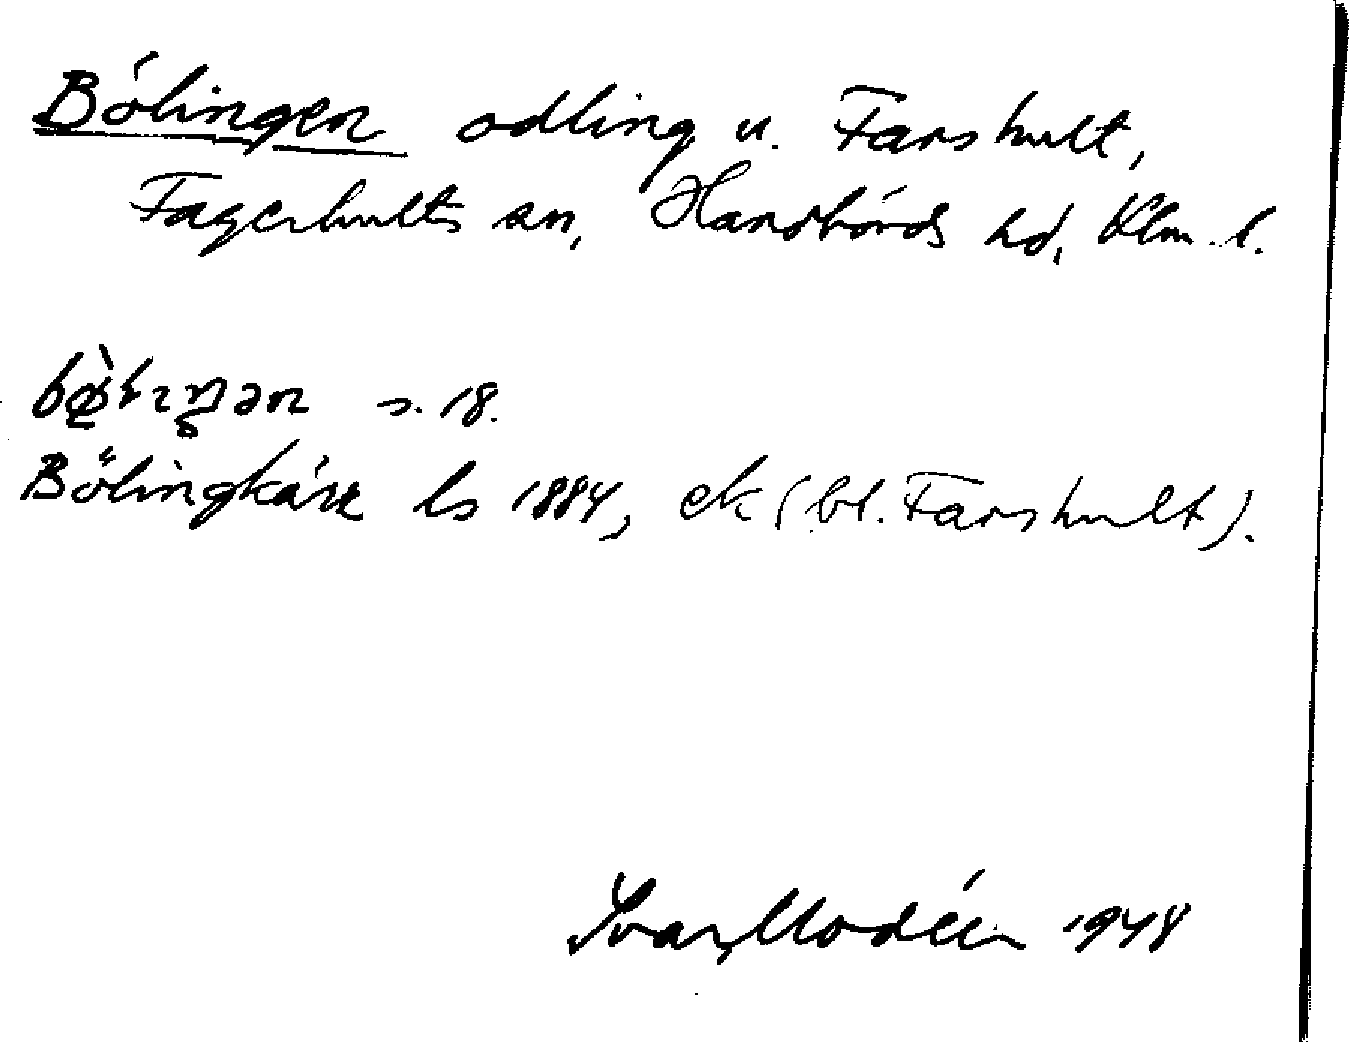 Bölingen odling u. Farshult,
Fagerhults sn, Handbörds hd, Klm. l.
s. 18.
Bölingkärr ls 1884, ek (bl. Farshult).
Ivar Modéer 1948